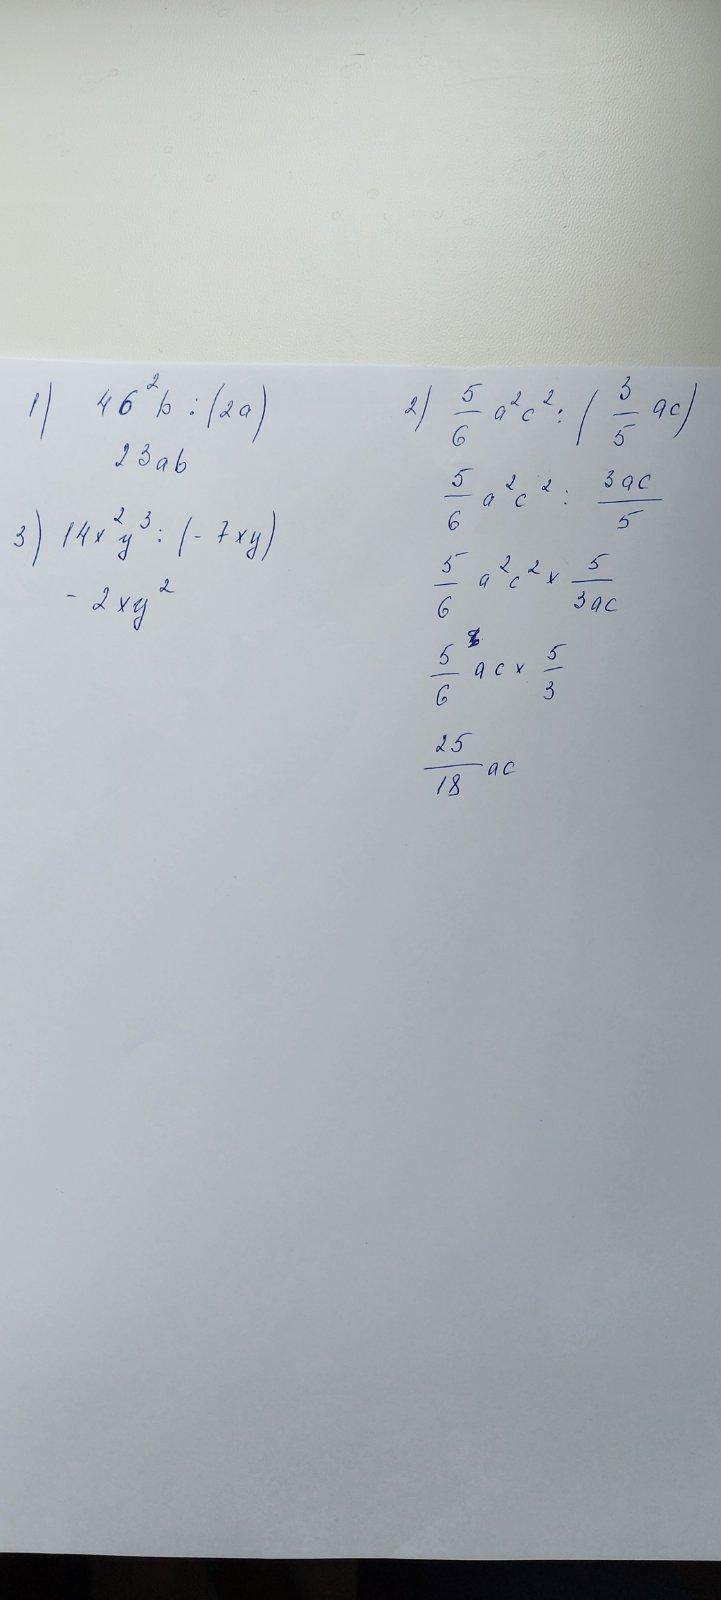 1) 46²b : (2a)
23ab
3) 14x²y³ : (- 7xy)
- 2xy²
2) 5/6 a²c² : (3/5 ac)
5/6 a²c² : 3ac/5
5/6 a²c² × 5/3ac
5/6 ac × 5/3
25/18 ac